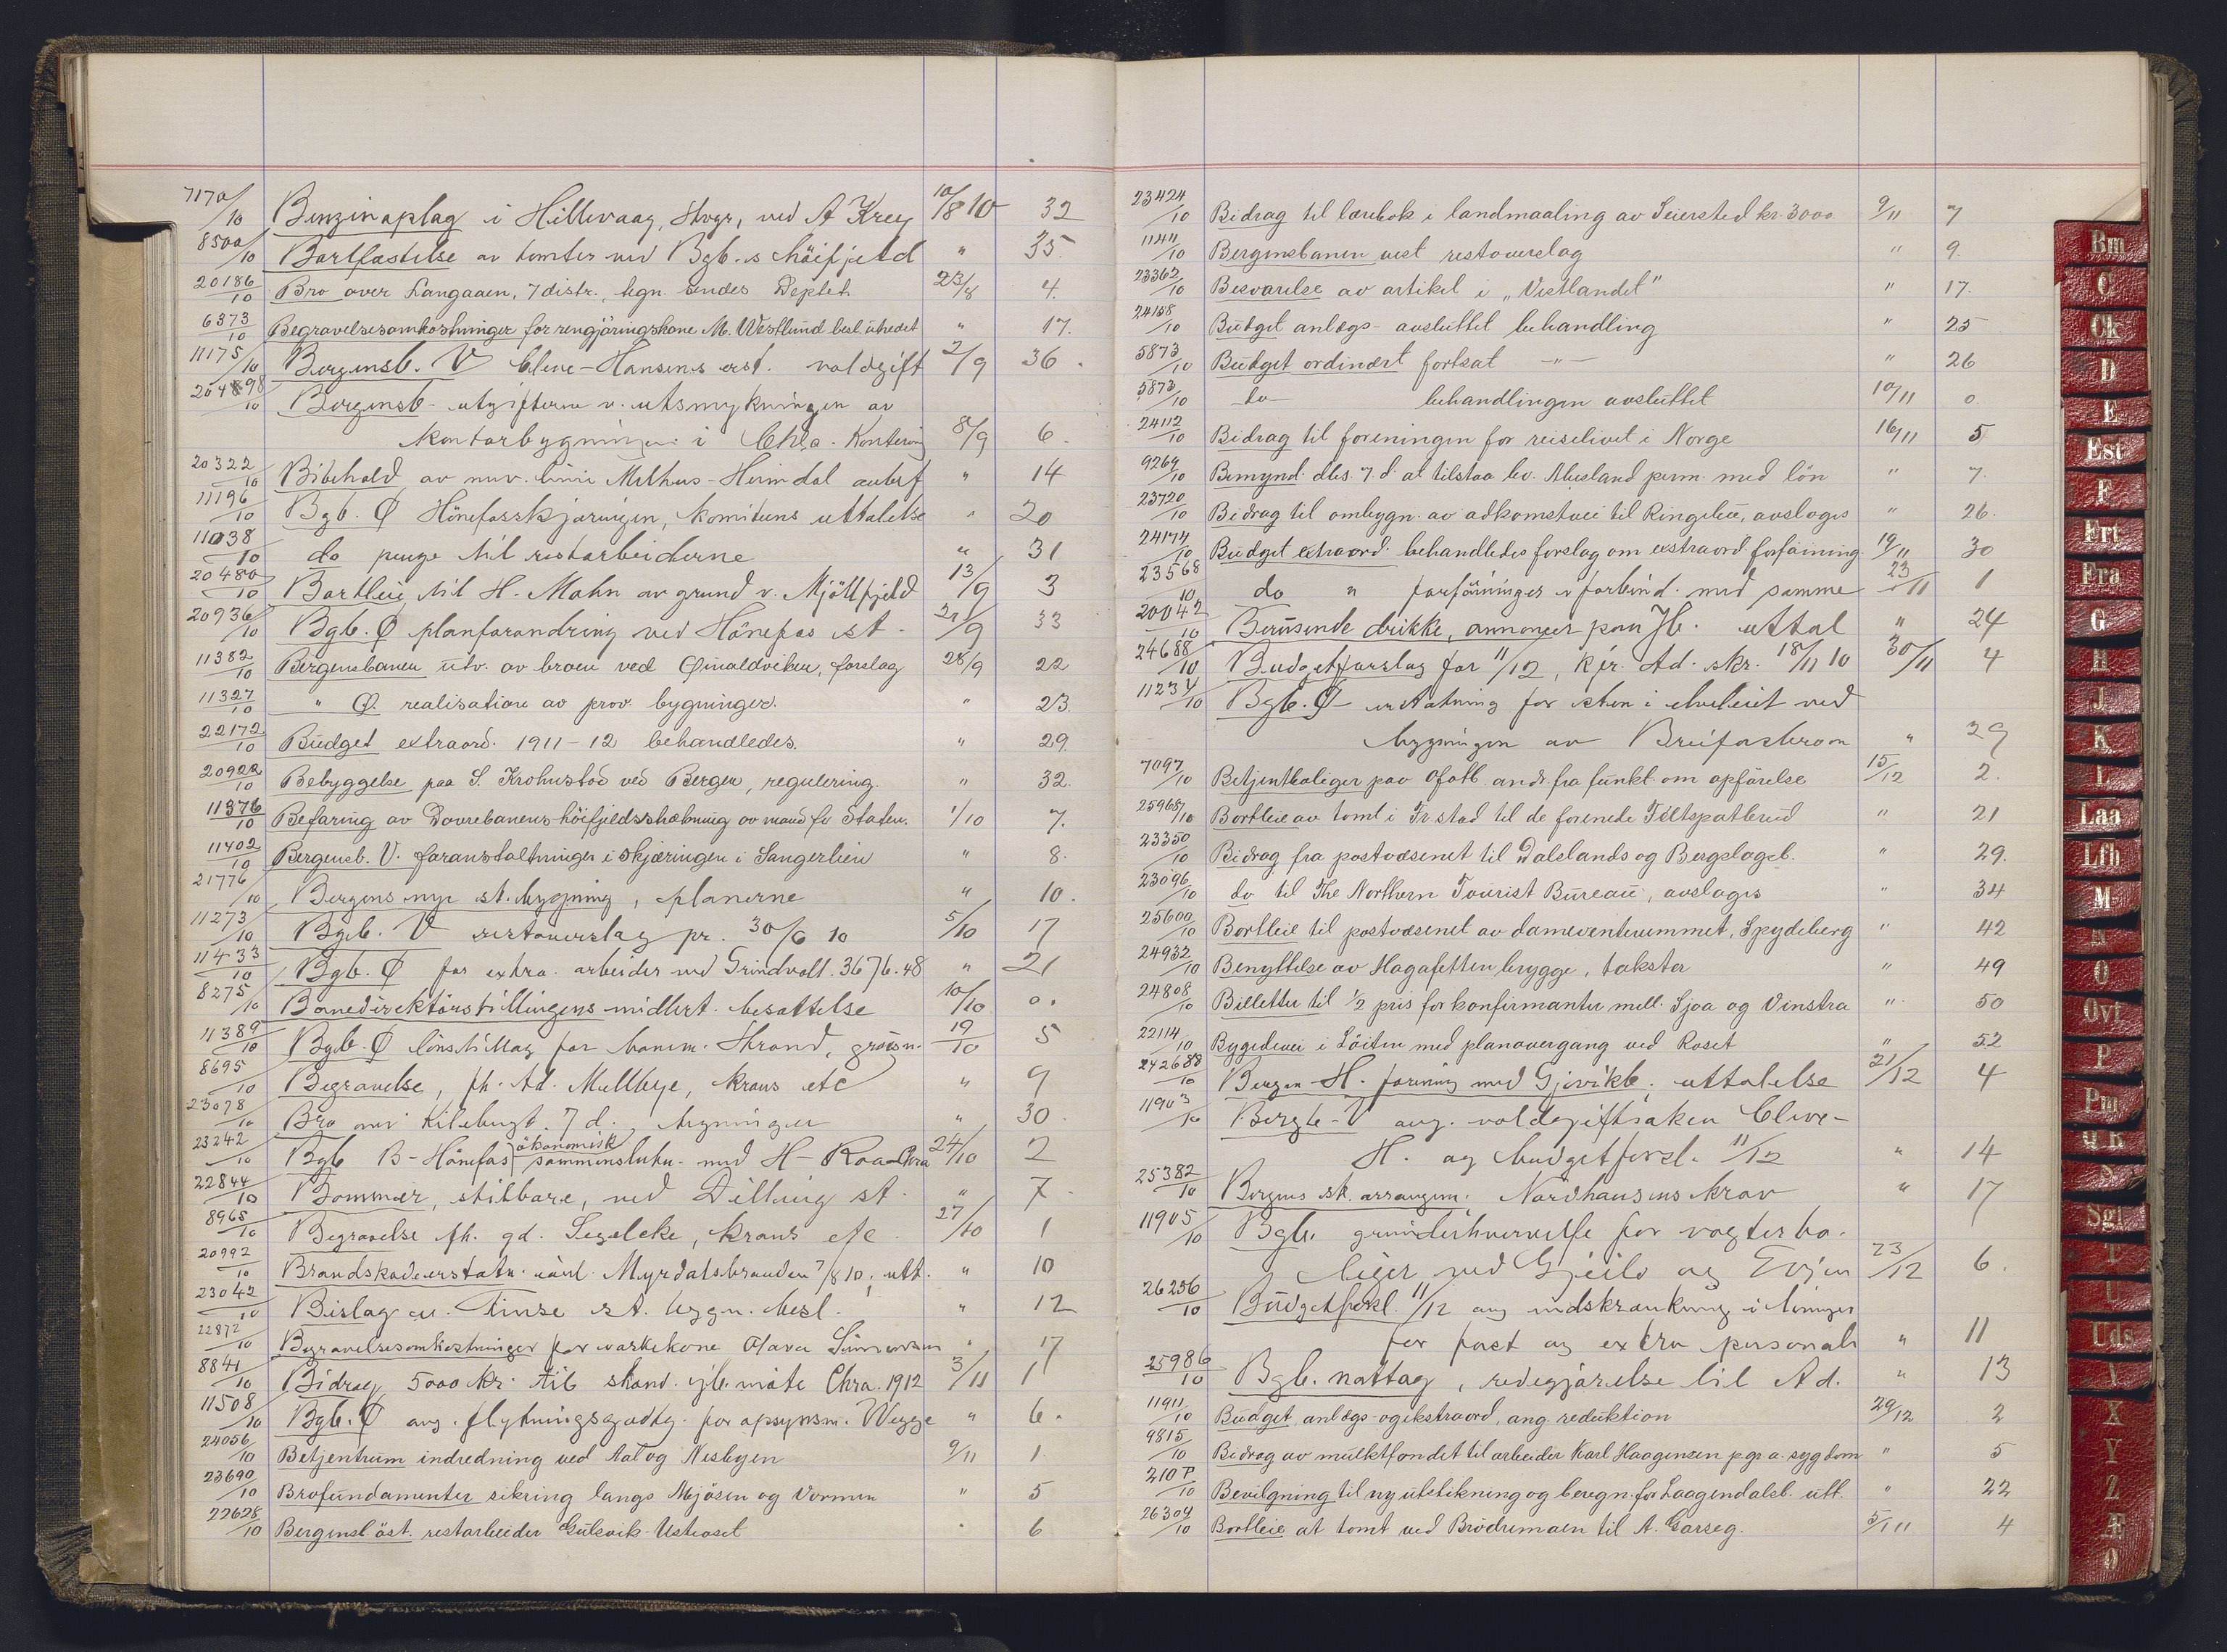 7170/10 Benzinoplag i Hillevaag, Stvgr, ved A Krey 10/8 10 32
8500/10 Bortfæstelse av tomter ved Bgb.s høifjeld " 35.
20186/10 Bro over Langaaen, 7 distr., tegn. sendes Deptet 23/8 4.
6373/10 Begravelsesomkostninger for rengjøringskone M. Westlund besl. utredet " 17.
11175/10 Bergensb. V Cleve-Hansens erst. voldgift 2/9 36.
/10 Bergensb- utgifterne v. utsmykningen av
kontorbygningen i Chra. Kontering 8/9 6.
20322/10 Bibehold av nuv. linie Melhus-Heimdal " 14
11196/10 Bgb. Ø Hönefosskjæringen, komiteens uttalelse " 20
11038/10 do penge til restarbeiderne " 31
20480/10 Bortleie til H. Mohn av grund v. Mjölfjeld 13/9 3
20936/10 Bgb. Ø planforandring ved Hönefos st. 21/9 33
11382/10 Bergensbanen utv. av broen ved Gunaldviken, forslag 28/9 22
11327/10 " Ø. realisation av prov. bygninger. " 23.
22172/10 Budget extraord. 1911-12 behandledes. " 29.
20922/10 Bebyggelse paa S. Krohnstad ved Bergen, regulering. " 32.
11376/10 Befaring av Dovrebanens höifjeldsstrækning av mænd fr Staten. 1/10 7.
11402/10 Bergensb. V. foranstaltninger i skjæringen i Sangerlien " 8.
21776/10 Bergens nye st. bygning, planerne " 10.
11273/10 Bgb. V restoverslag pr. 30/6 10 5/10 17
11433/10 Bgb. Ø for extra arbeider ved Grindvolt. 3676.48 " 21
8275/10 Banedirektörstillingens midlert. besættelse 10/10 0.
11389/10 Bgb. Ø lönstillæg for banem. Strand, 19/10 5
8695/10 Begravelse, fh. Ad. Mellbye, krans etc " 9
23078/10 Bro 7 d., bygningen " 30.
23242/10 Bgb B-Hönefos økonomisk sammenslutn. med H-Roa-Chra 24/10 2
22844/10 Bommer, stilbare, ved Dilling st. " 7.
8965/10 Begravelse fh. gd. Segelcke, krans etc. 27/10 1
20992/10 Brandskadeerstatn. Myrdalsbranden 7/8 10, utt. " 10
23042/10 Bislag Finse st. bygn. besl. " 12
22872/10 Begravelsesomkostninger for vaskekone Olava " 17
8841/10 Bidrag 5000 kr. til skand. jb. möte Chra. 1912 3/11 1
11508/10 Bgb. Ø ang. flytningsgodtg. for opsynsm. Wegge " 6.
24056/10 Betjentrum indredning ved Aal og Nesbyen 9/11 1.
23690/10 Brofundamenter sikring langs Mjösen og Vormen " 5
22628/10 Bergensb. öst. restarbeider Gulsvik-Ustaoset " 6
23424/10 Bidrag til lærebok i landmaaling av Seiersted kr. 3000 9/11 7
11411/10 Bergensbanen vest restoverslag " 9.
23362/10 Besvarelse av artikel i „Vestlandet" " 17.
24158/10 Budget anlægs- avsluttet behandling " 25
5873/10 Budget ordinært fortsat -"- " 26
5873/10 do behandlingen avsluttet 10/11 0.
24112/10 Bidrag til foreningen for reiselivet i Norge 16/11 5
9269/10 Bemynd. dbs. 7. d. at tilstaa bv. Abusland perm. med lön " 7.
23720/10 Bidrag til ombygn. av adkomstvei til Ringebu, avslages " 26.
24174/10 Budget extraord. behandledes forslag om extraord. forföining 19/11 30
23568/10 do " forföininger i forbind. med samme 23/11 1
20042/10 Berusende drikke, annoncer paa Jb. uttal " 24
24688/10 Budgetforslag for 11/12, kfr. Ad. skr. 18/11 10 30/11 4
11234/10 Bgb. Ø - erstatning for sten i elveleiet ved
bygningen av Breifosbroen " 29
7097/10 Betjentboliger paa Ofotb. andr. fra funkt. om opförelse 15/12 2.
25968/10 Bortleie av tomt i Fr.stad til de forenede Feltspatbrud " 21
23350/10 Bidrag fra postvæsenet til Dalslands og Bergslagsb. " 29.
23096/10 do til The Northern Tourist Bureau, avslages " 34
25600/10 Bortleie til postvæsenet av dameventerummet, Spydeberg " 42
24932/10 Benyttelse av Hagafetten brygge, takster " 49
24808/10 Billetter til 1/2 pris for konfirmanter mell. Sjoa og Vinstra " 50
22114/10 Bygdevei i Löiten med planovergang ved Roset " 52
242688/10 Bergen-H. forening med Gjövikb. uttalelse 21/12 4
11903/10 Bergb-V ang. voldgiftsaken Cleve-
H. og budgetforsl. 11/12 " 14
25382/10 Bergens st. arrangem. Nordhausens krav " 17
11905/10 Bgb. grunderhvervelse for vogterbo-
liger ved Gjeilo og Evjen 23/12 6.
26256/10 Budgetforsl. 11/12 ang indskrænkning i lönninger
for fast og extra personale " 11
25986/10 Bgb. nattog, redegjörelse til Ad. " 13
11911/10 Budget anlægs- og ekstraord, ang. reduktion 29/12 2
9815/10 Bidrag av mulktfondet til arbeider Karl Haagensen p.gr.a. sygdom " 5
210 P/10 Bevilgning til ny utstikning og beregn. for Laagendalsb. utt. " 22
26304/10 Bortleie at tomt ved Brödremoen til A. Garseg. 5/1 11 4
Bm
C
Ck
D
E
Est
F
Frt
Fra
G
H
J
K
L
Laa
Lfb
M
N
O
Ovf
P
Pm
Q R
S
Sgl
T
U
Uds
V
X
Y
Z
Æ
Ø